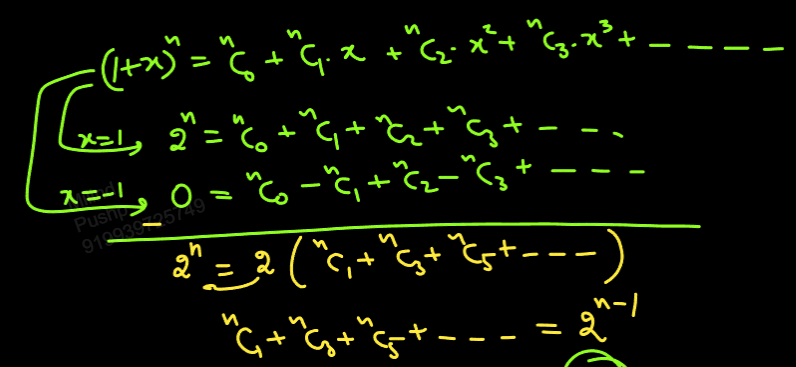 (1+x)ⁿ = ⁿC₀ + ⁿC₁·x + ⁿC₂·x² + ⁿC₃·x³ + - - - - -
x=1 2ⁿ = ⁿC₀ + ⁿC₁ + ⁿC₂ + ⁿC₃ + - - - .
x=-1 0 = ⁿC₀ - ⁿC₁ + ⁿC₂ - ⁿC₃ + - - - -
2ⁿ = 2 (ⁿC₁ + ⁿC₃ + ⁿC₅ + - - - -)
ⁿC₁ + ⁿC₃ + ⁿC₅ + - - - - = 2ⁿ⁻¹